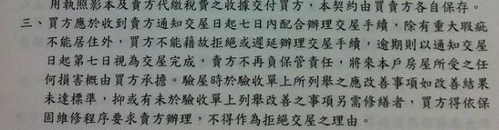 用執照影本及賣方代繳稅費之收據交付買方，本契約由買賣方各自保存。
三、買方應於收到賣方通知交屋日起七日內配合辦理交屋手續，除有重大瑕疵
不能居住外，買方不能藉故拒絕或遲延辦理交屋手續，逾期則以通知交屋
日起第七日視為交屋完成，賣方不再負保管責任，將來本戶房屋所受之任
何損害概由買方承擔。驗屋時於驗收單上所列舉之應改善事項如改善結果
未達標準，抑或有未於驗收單上列舉改善之事項另需修繕者，買方得依保
固維修程序要求賣方辦理，不得作為拒絕交屋之理由。